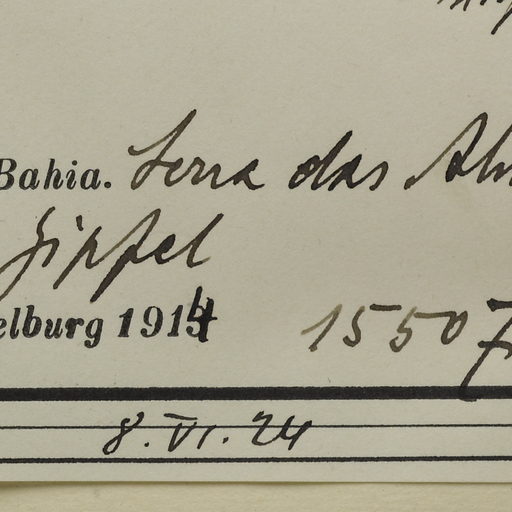 Bahia. Serra das
Gipfel
elburg 1914 1550
8. VI. 24